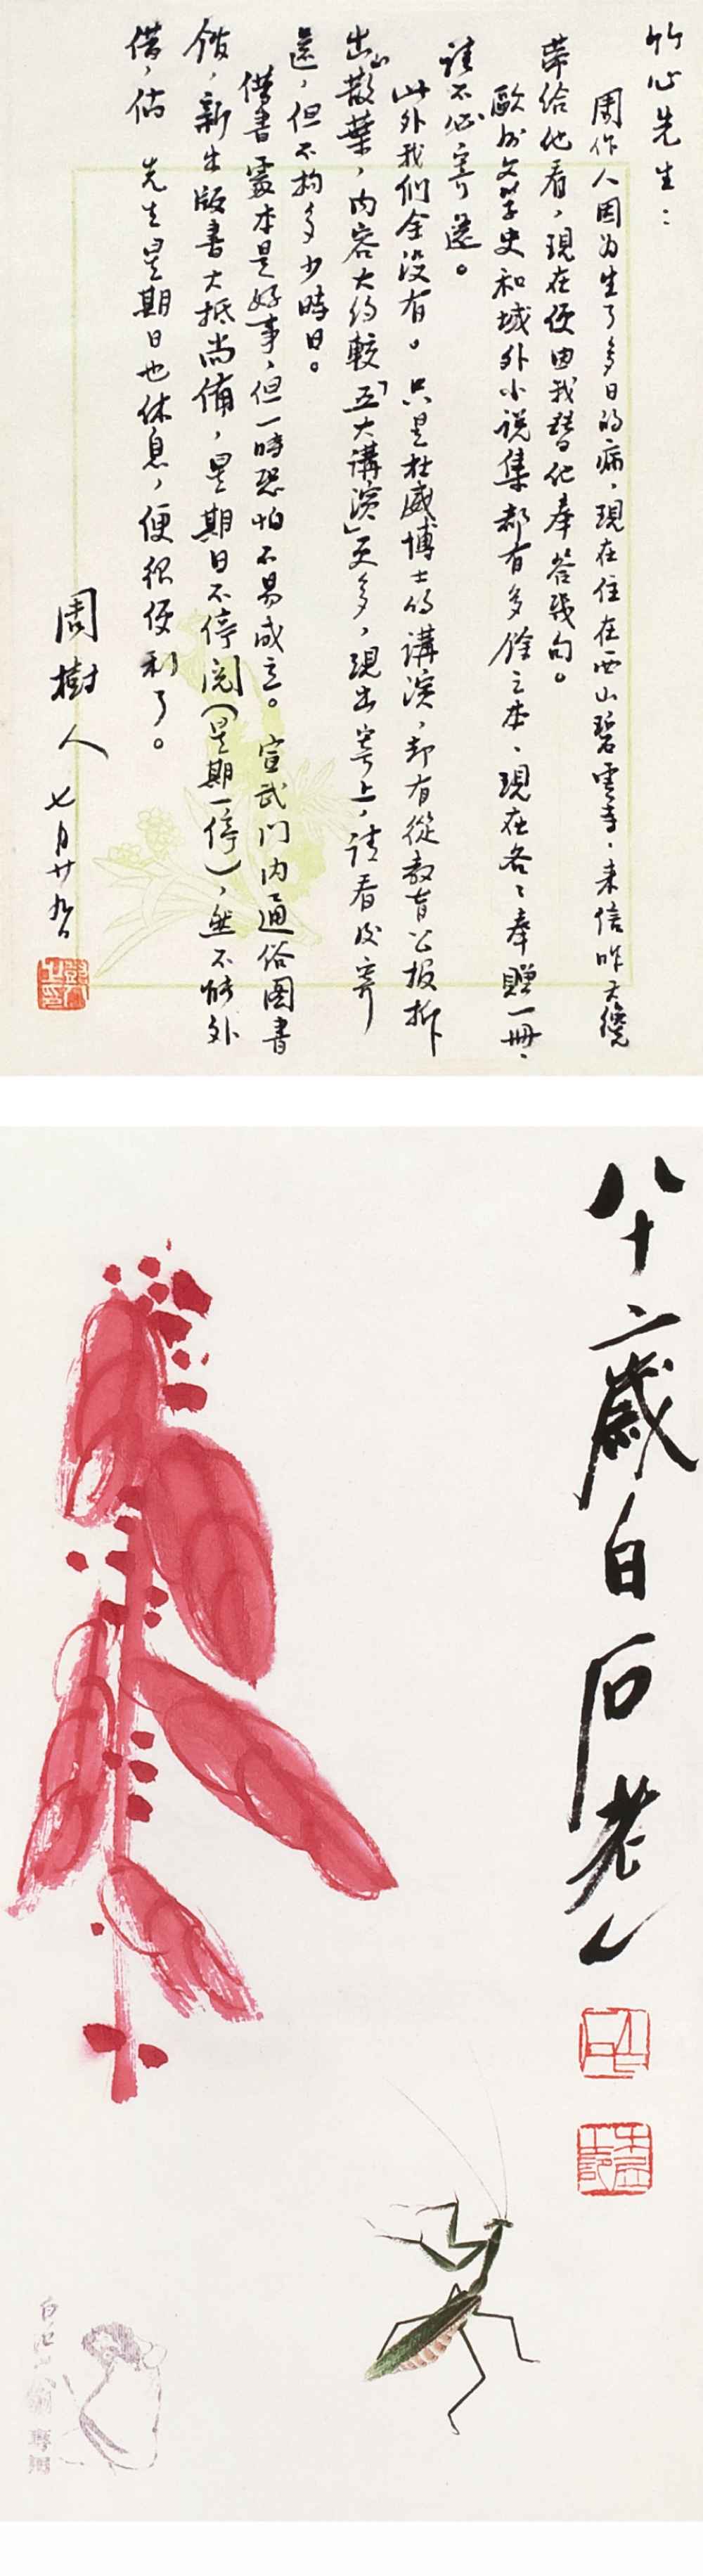 竹心先生：
周作人因为生了多日的病，現在住在西山碧雲寺，来信昨天纔
带给他看，現在便由我替他奉答幾句。
歐洲文学史和域外小说集都有多餘之本，現在各各奉贈一冊，
请不必寄還。
此外我们全没有。只是杜威博士的講演，却有從教育公报拆
出的散葉，内容大约較「五大講演」更多，現出寄上，请看後寄
還，但不拘多少時日。
借書處本是好事，但一時恐怕不易成立。宣武门内通俗图書
館，新出版書大抵尚備，星期日不停阅（星期一停），然不能外
借，倘　先生星期日也休息，便很便利了。
周樹人　七月廿九日
八十六歲白石老人